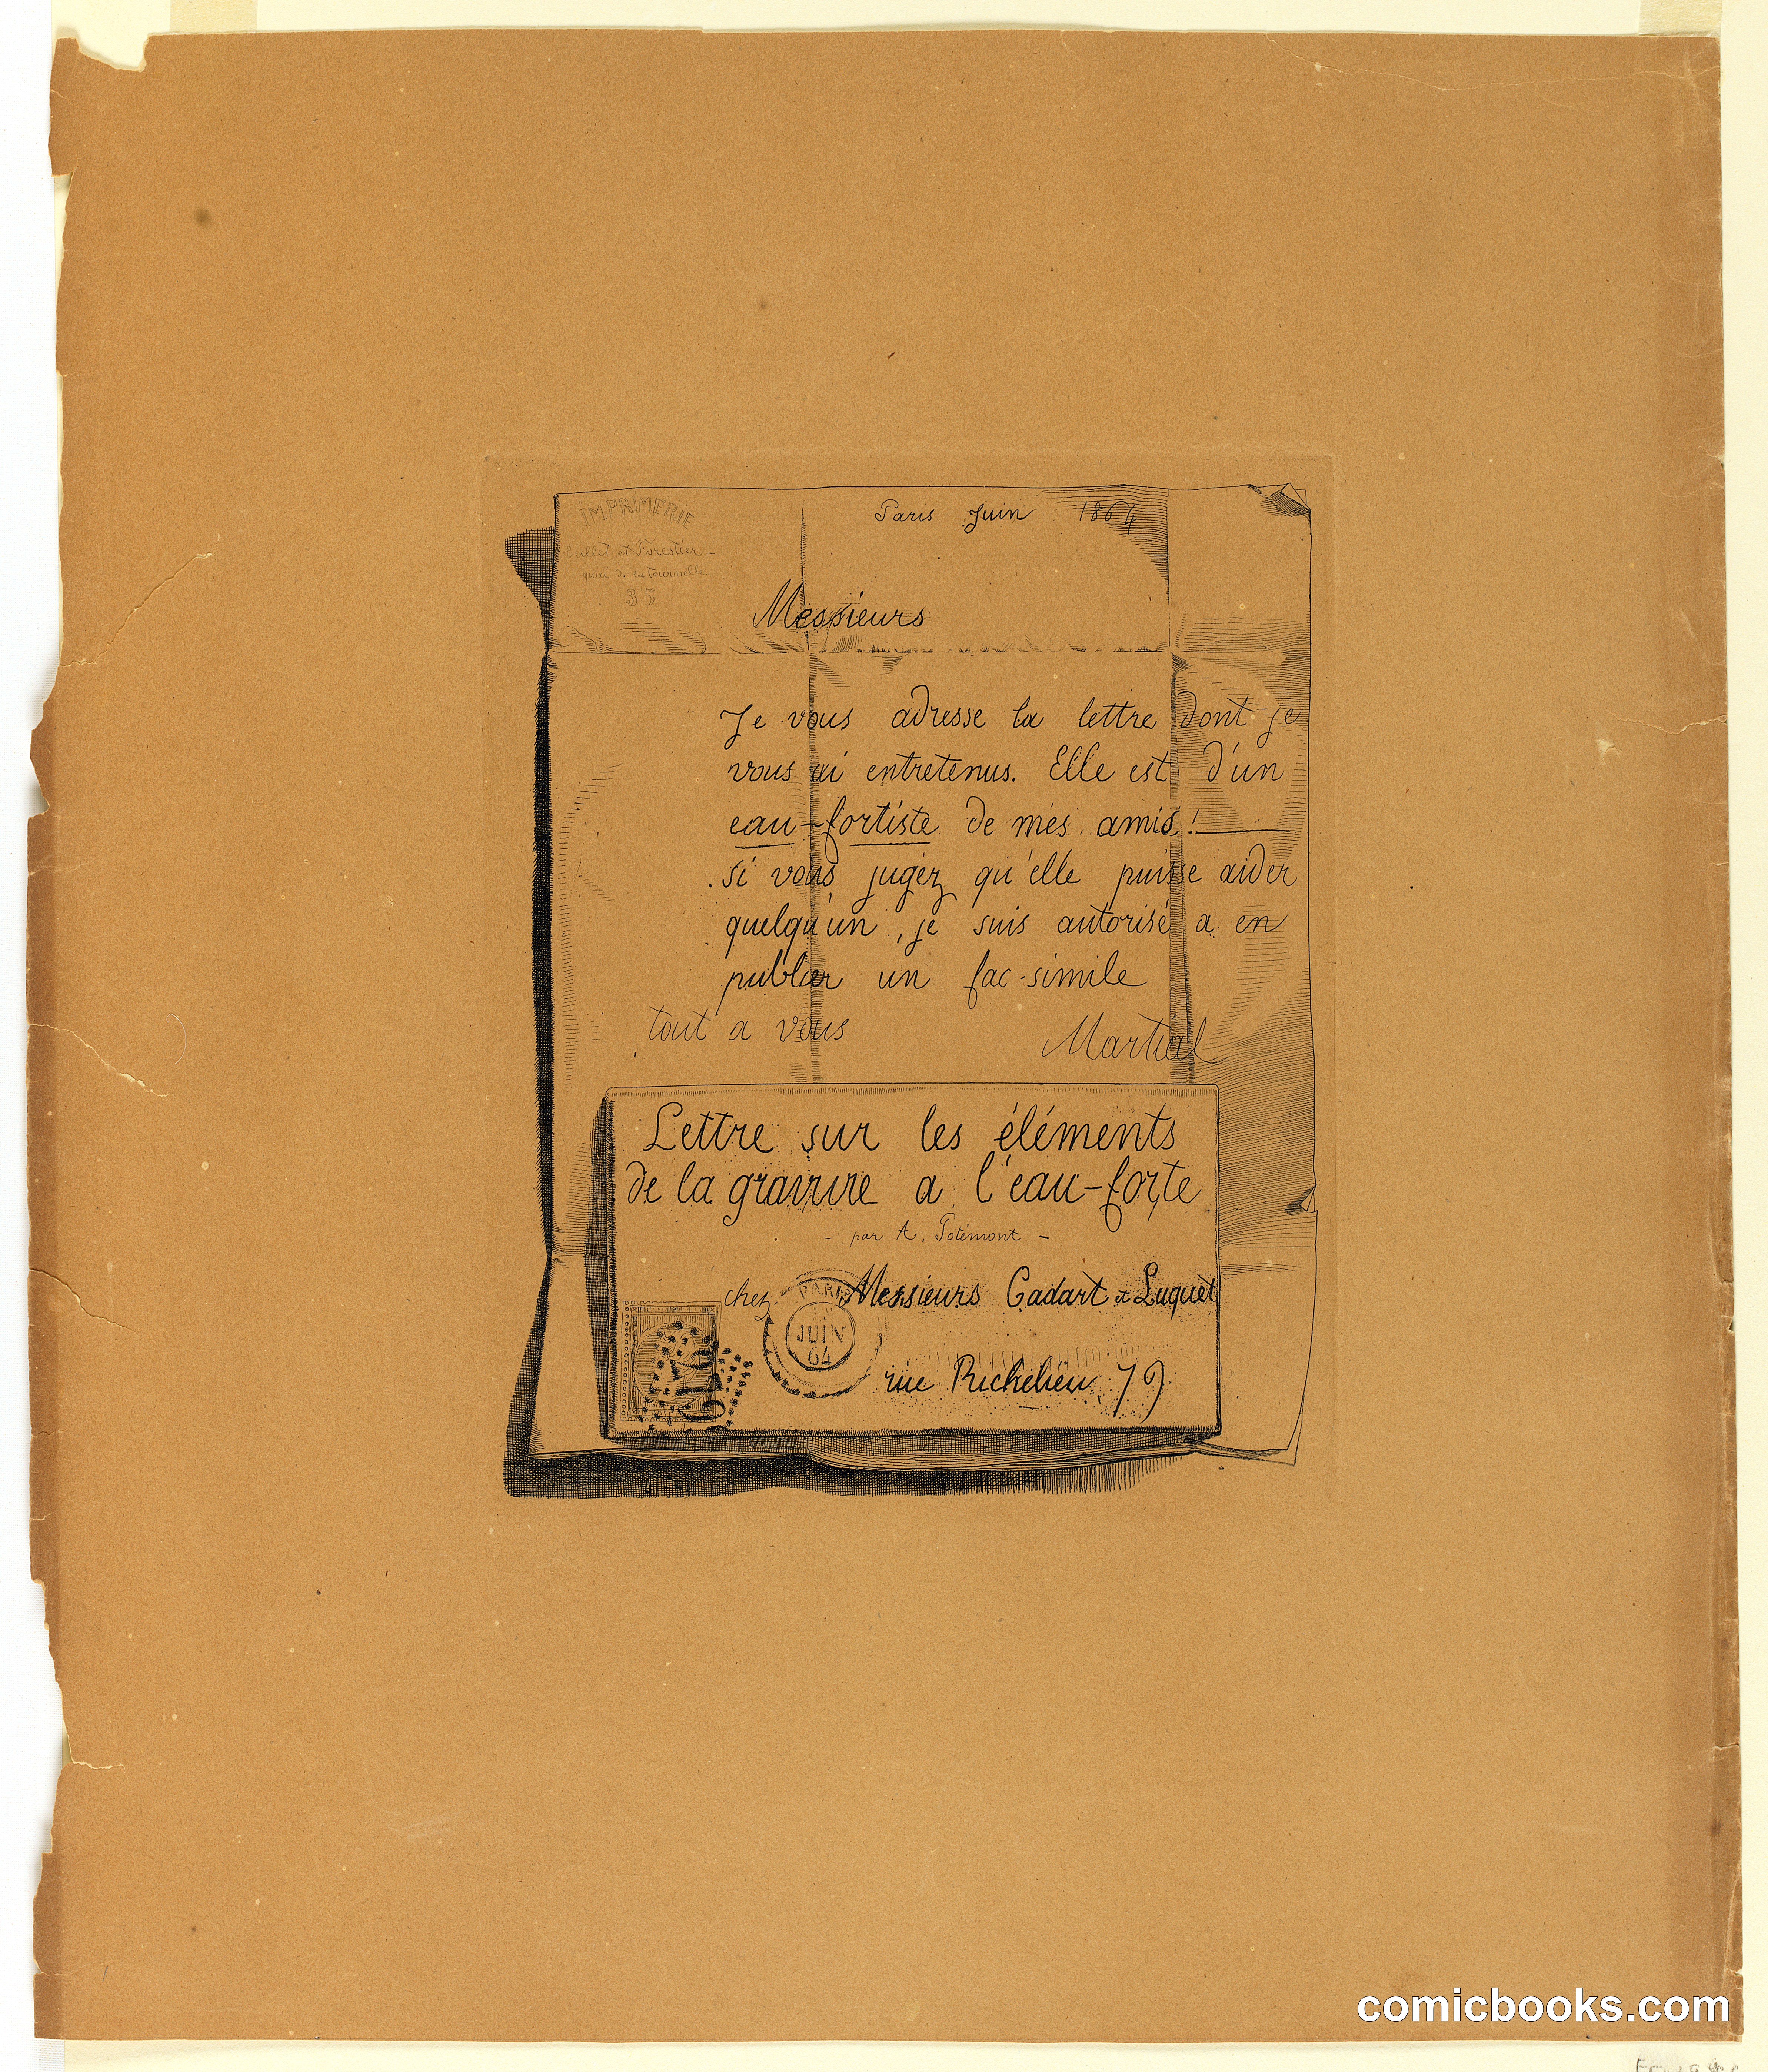 IMPRIMERIE
et Forestier
quai de la tournelle
35
Paris Juin 1864
Messieurs
Je vous adresse la lettre dont je
vous ai entretenus. Elle est d'un
eau-fortiste de mes amis!
si vous jugez qu'elle puisse aider
quelqu'un, je suis autorisé a en
publier un fac-simile
tout a vous Martial
Lettre sur les éléments
de la gravure a l'eau-forte
- par A. Potémont -
chez Messieurs Cadart et Luquet
PARIS
JUIN
64
rue Richelieu 79
comicbooks.com